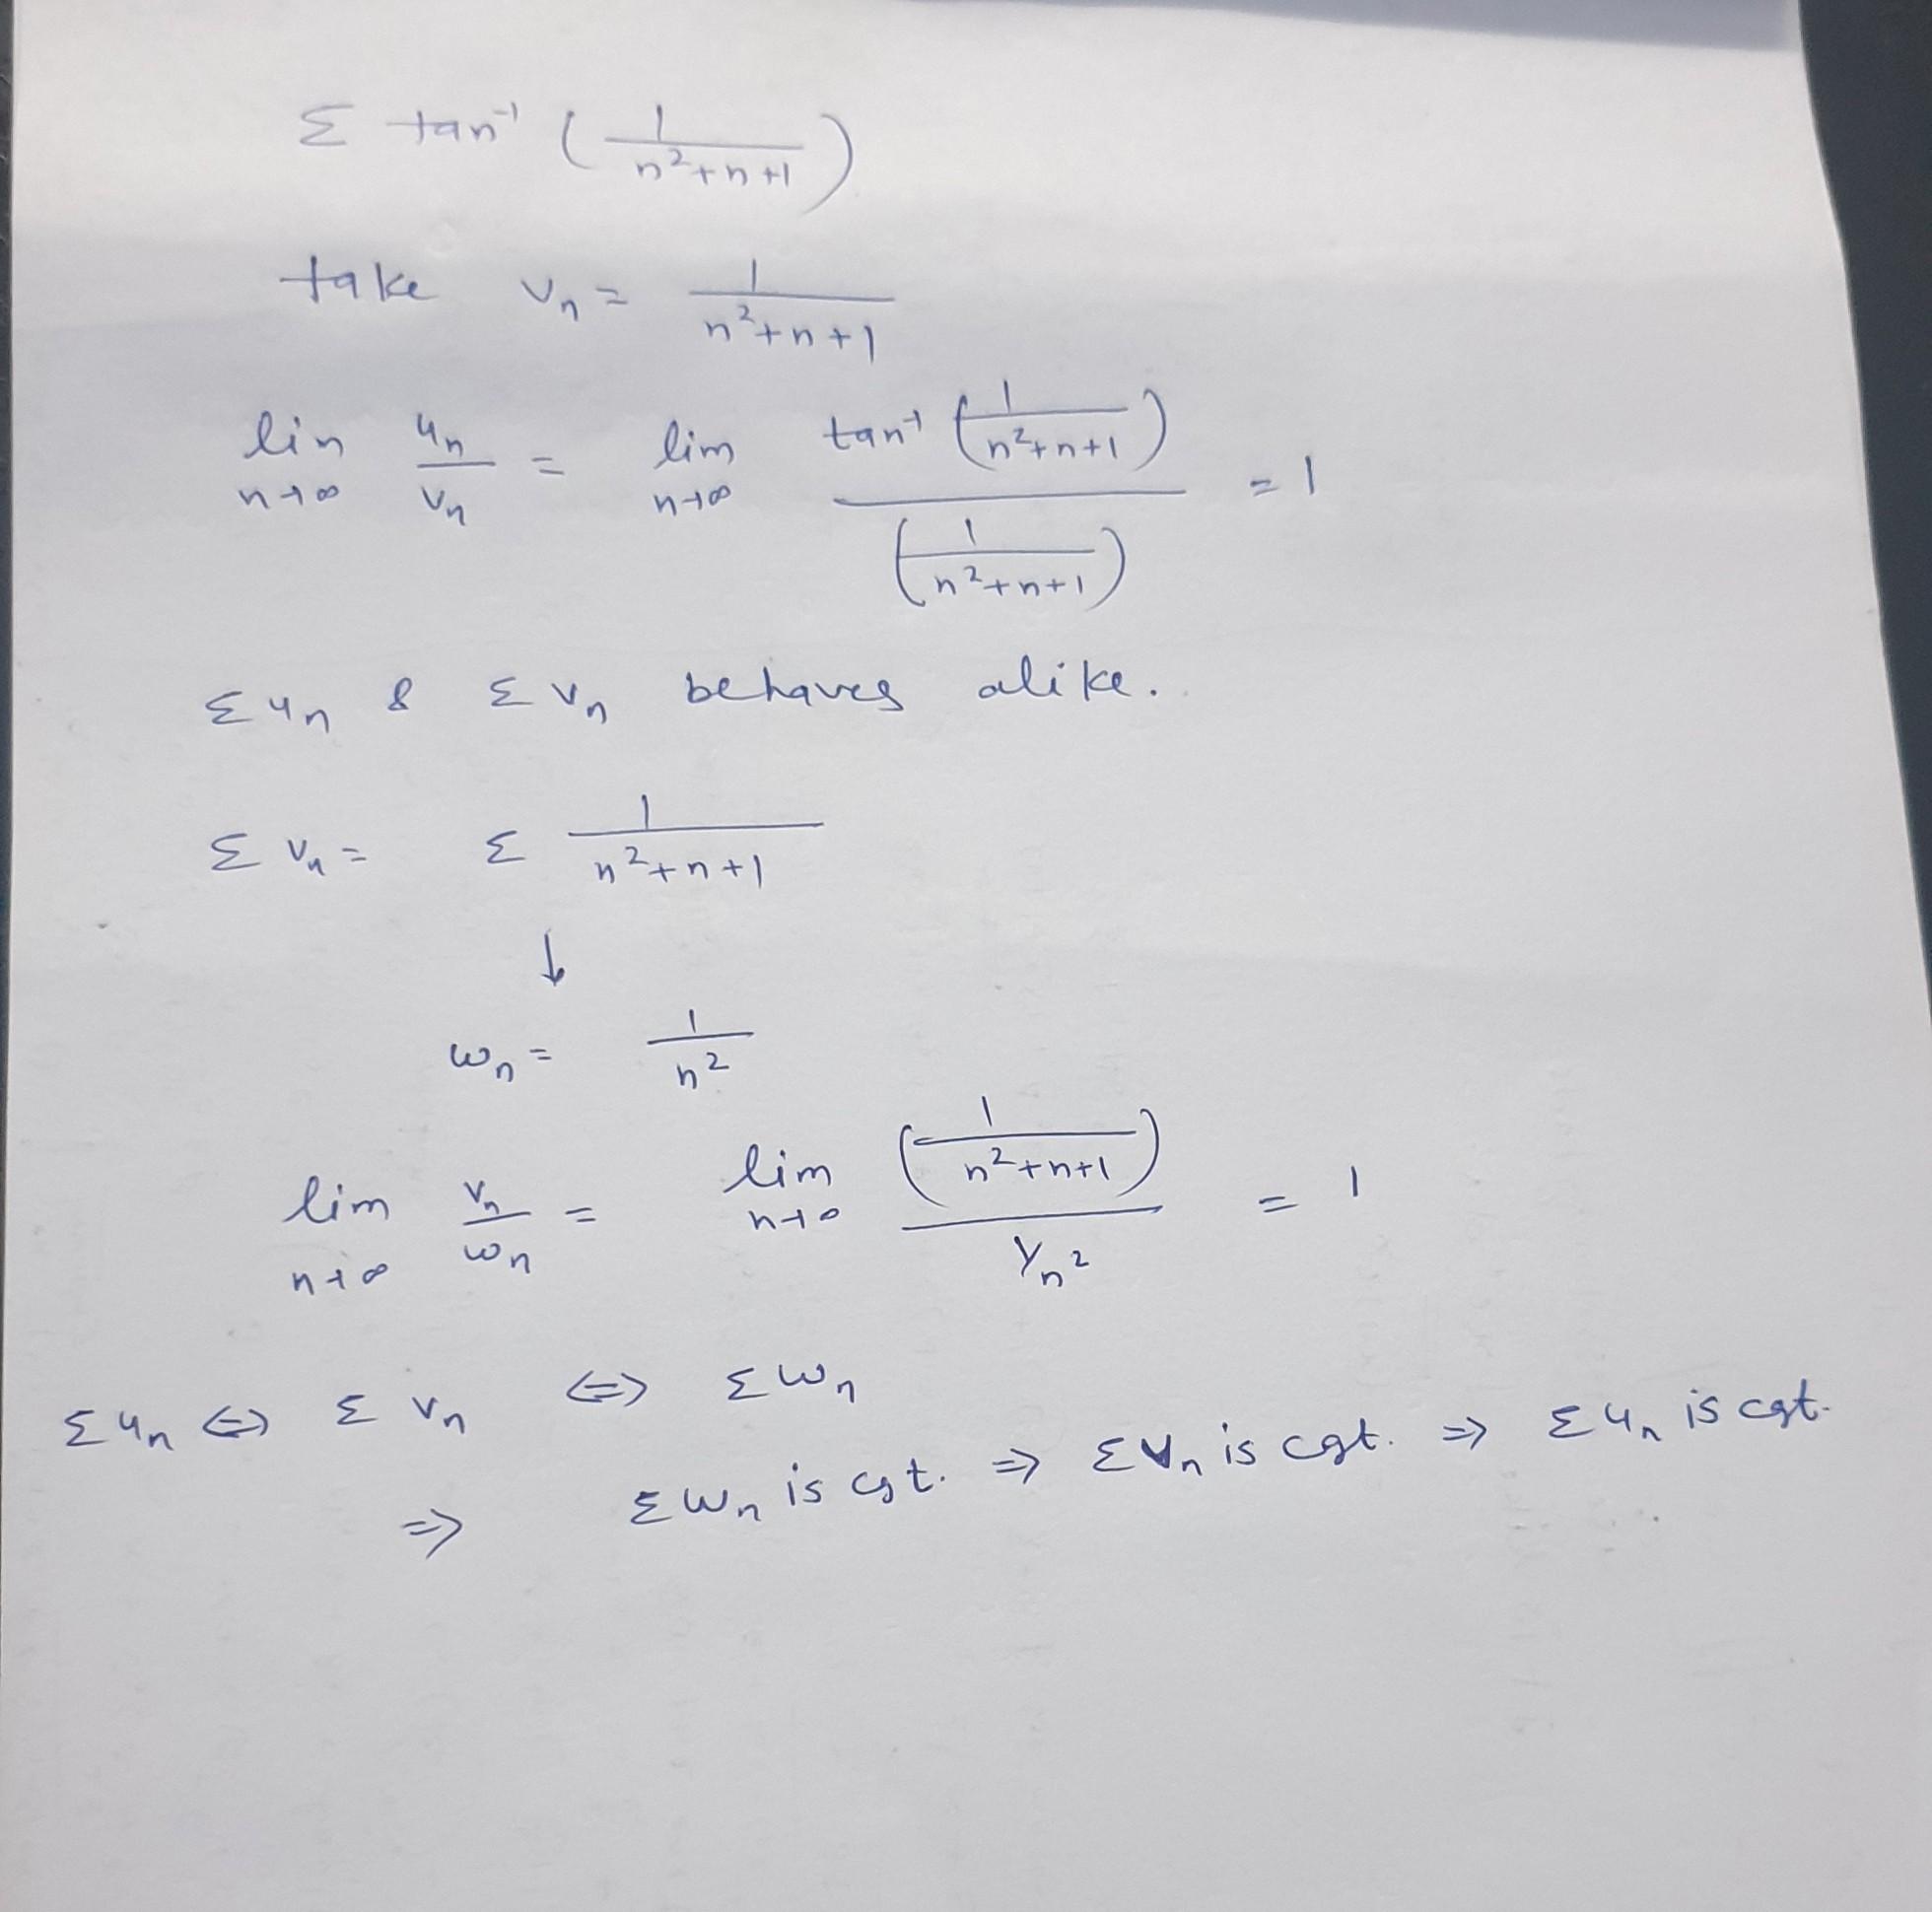 Σ tan⁻¹ (1/(n²+n+1))
take vₙ = 1/(n²+n+1)
lin n→∞ uₙ/vₙ = lim n→∞ tan⁻¹(1/(n²+n+1)) / (1/(n²+n+1)) = 1
Σuₙ & Σvₙ behaves alike.
Σ vₙ = Σ 1/(n²+n+1)
↓
wₙ = 1/n²
lim n→∞ vₙ/wₙ = lim n→∞ (1/(n²+n+1)) / (1/n²) = 1
Σuₙ ⇔ Σ vₙ ⇔ Σwₙ
⇒ Σwₙ is cgt. ⇒ Σvₙ is cgt. ⇒ Σuₙ is cgt.